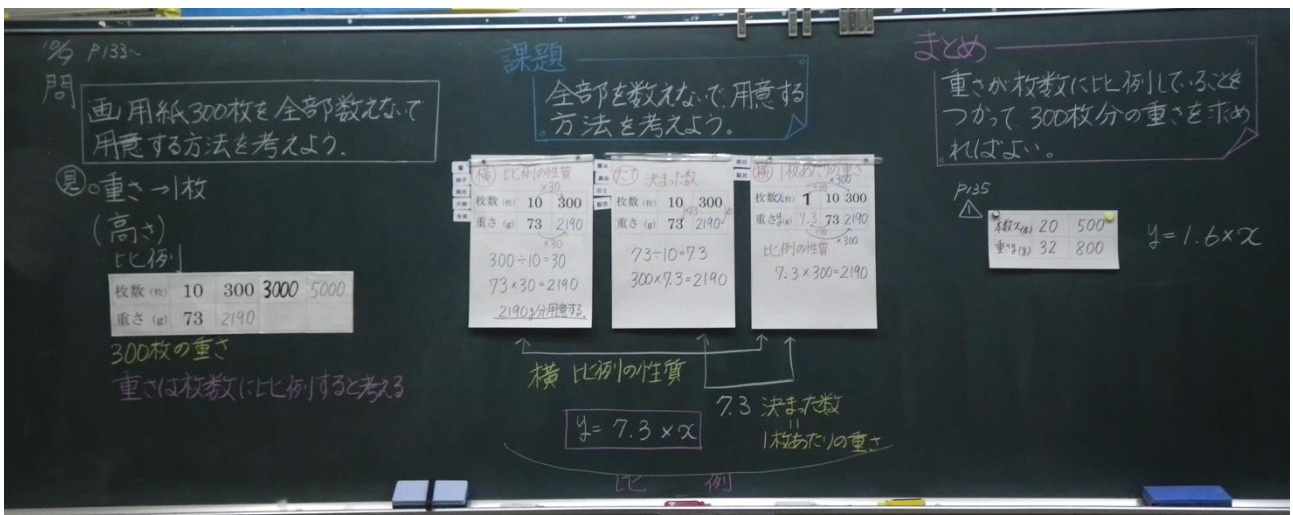 10/9 P133~
問
画用紙300枚を全部数えないで
用意する方法を考えよう.
見 ○重さ→1枚
(高さ)
比例
枚数(枚) 10 300 3000 5000
重さ(g) 73 2190
300枚の重さ
重さは枚数に比例すると考える
課題
全部を数えないで、用意する
方法を考えよう。
横 比例の性質
×30
枚数(枚) 10 300
重さ(g) 73 2190
×30
300÷10=30
73×30=2190
2190g分用意する。
たて 決まった数
枚数(枚) 10 300
重さ(g) 73 2190
73÷10=7.3
300×7.3=2190
横 1枚あたりの重さ
×300
÷10
枚数x(枚) 1 10 300
重さy(g) 7.3 73 2190
÷10
×300
比例の性質
7.3×300=2190
横 比例の性質
7.3 決まった数
=
1枚あたりの重さ
y=7.3×x
比例
まとめ
重さが枚数に比例していることを
つかって、300枚分の重さを求め
ればよい。
P135
1
本数x(本) 20 500
重さy(g) 32 800
y=1.6×x